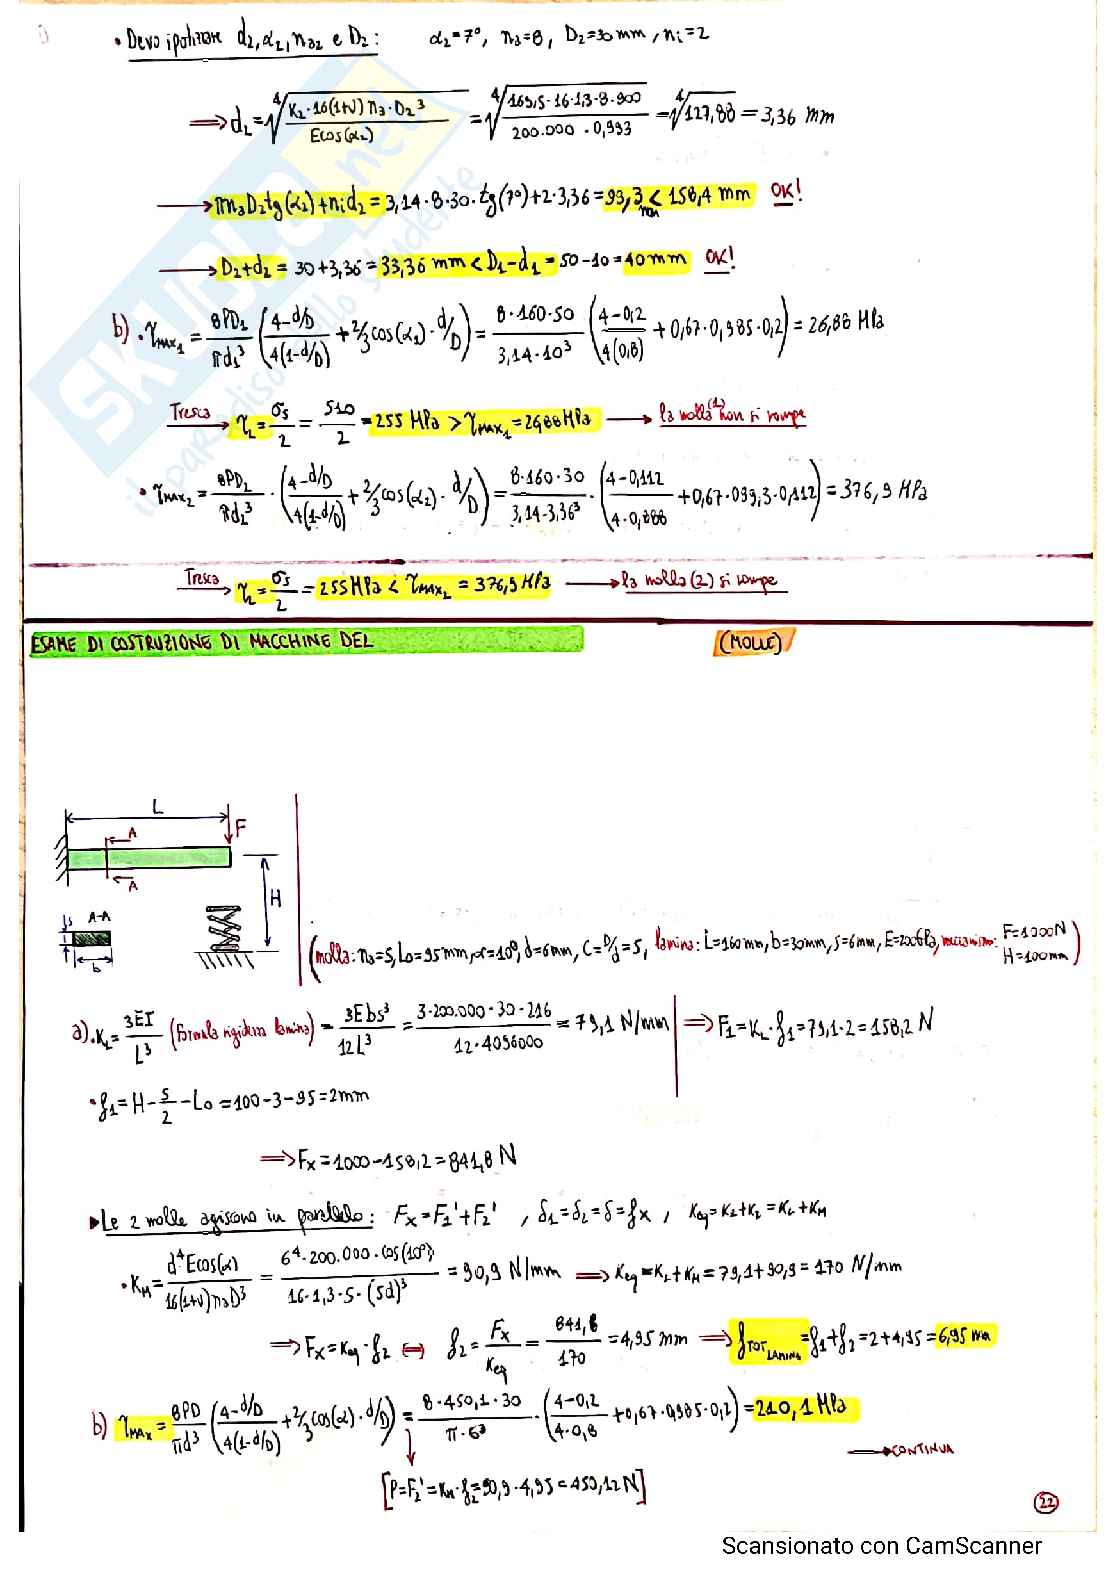 • Devo ipotizzare d₂, α₂, n₂₂ e D₂: α₂=7°, n₃=8, D₂=30 mm, nᵢ=2
⟹ d₂=⁴√(K₂·16(1+ν) n₃·D₂³ / Ecos(α₂)) = ⁴√(169,5·16·1,3·8·900 / 200.000·0,993) = ⁴√127,88 = 3,36 mm
→ πn₃D₂tg(α₂)+nᵢd₂ = 3,14·8·30·tg(7°)+2·3,36 = 93,3 mm < 158,4 mm OK!
→ D₂+d₂ = 30+3,36 = 33,36 mm < D₁-d₁ = 50-10 = 40 mm OK!
b) • τMAX₁ = 8PD₁/πd₁³ (4-d/D / 4(1-d/D) + 2/3 cos(α₁)·d/D) = 8·160·50 / 3,14·10³ (4-0,2 / 4(0,8) + 0,67·0,985·0,2) = 26,88 MPa
Tresca → τ₂ = σs/2 = 510/2 = 255 MPa > τMAX₁ = 26,88 MPa → la molla (1) non si rompe
• τMAX₂ = 8PD₂/πd₂³ · (4-d/D / 4(1-d/D) + 2/3 cos(α₂)·d/D) = 8·160·30 / 3,14·3,36³ · (4-0,112 / 4·0,888 + 0,67·099,3·0,112) = 376,9 MPa
Tresca → τ₂ = σs/2 = 255 MPa < τMAX₂ = 376,9 MPa → la molla (2) si rompe
ESAME DI COSTRUZIONE DI MACCHINE DEL (MOLLE)
L
F
A
A
H
A-A
s
b
(molla: n₃=5, L₀=95mm, α=10°, d=6mm, C=D/d=5, lamina: L=160mm, b=30mm, s=6mm, E=200GPa, meccanismo: F=1000N H=100mm)
a) • K_L = 3EI/L³ (formula rigidezza lamina) = 3Ebs³/12L³ = 3·200.000·30·216 / 12·4096000 = 79,1 N/mm ⟹ F₁=K_L·f₁=79,1·2=158,2 N
• f₁=H-s/2-L₀=100-3-95=2mm
⟹ Fx=1000-158,2=841,8 N
▸ Le 2 molle agiscono in parallelo: Fx=F₁'+F₂', δ₁=δ₂=δ=fx, Keq=K₁+K₂=K_L+K_M
• K_M = d⁴Ecos(α) / 16(1+ν)n₃D³ = 6⁴·200.000·cos(10°) / 16·1,3·5·(5d)³ = 90,9 N/mm ⟹ Keq=K_L+K_M=79,1+90,9=170 N/mm
⟹ Fx=Keq·f₂ ⟺ f₂=Fx/Keq=841,8/170=4,95 mm ⟹ fTOT LAMINA=f₁+f₂=2+4,95=6,95 mm
b) τMAX = 8PD/πd³ (4-d/D / 4(1-d/D) + 2/3 cos(α)·d/D) = 8·450,1·30 / π·6³ · (4-0,2 / 4·0,8 + 0,67·0,985·0,2) = 210,1 MPa
→ CONTINUA
[P=F₂'=K_M·f₂=90,9·4,95=450,12N]
22
Scansionato con CamScanner
SKUOLA.net
il paradiso dello studente